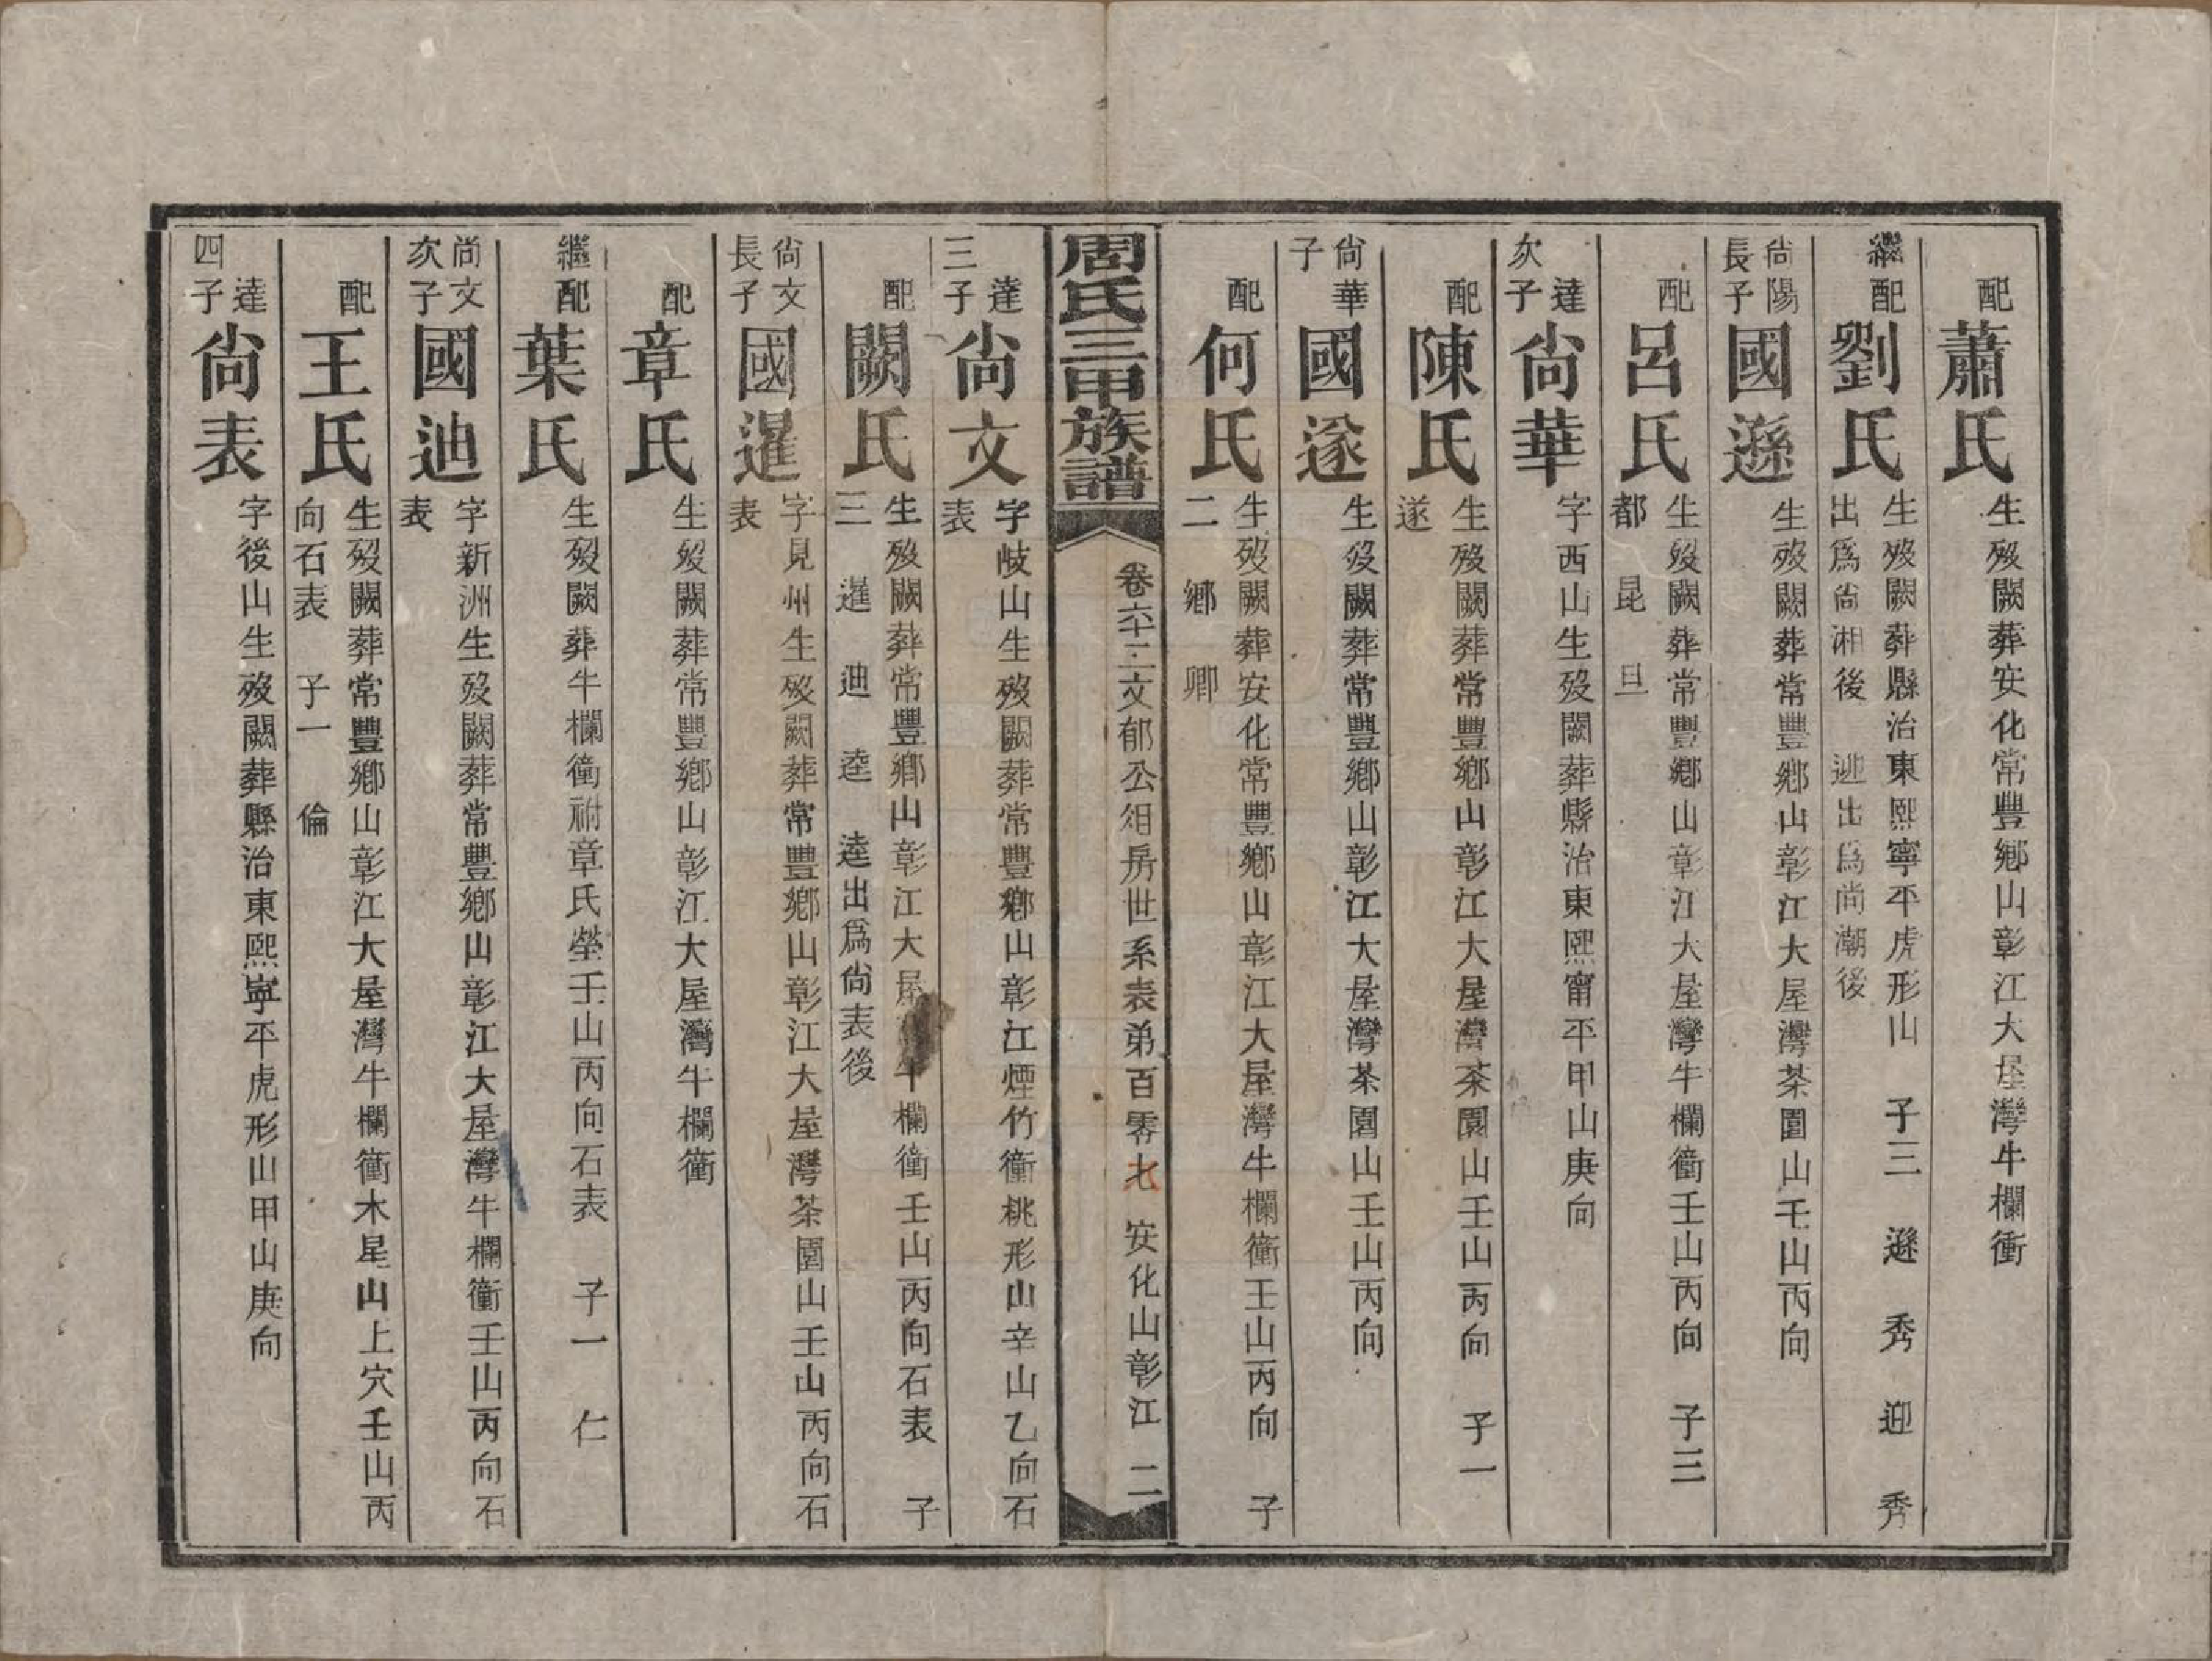 配蕭氏生歿闕葬安化常豐鄉山彰江大屋灣牛欄衝
繼配劉氏生歿闕葬縣治東熙寧平虎形山 子三 遜 秀 迎 秀
出爲尙湘後 迎出爲尙潮後
尙陽長子國遜生歿闕葬常豐鄉山彰江大屋灣茶園山壬山丙向
配呂氏生歿闕葬常豐鄉山彰江大屋灣牛欄衝壬山丙向 子三
都 昆 旦
達次子尙華字西山生歿闕葬縣治東熙甯平甲山庚向
配陳氏生歿闕葬常豐鄉山彰江大屋灣茶園山壬山丙向 子一
遂
尙華子國遂生歿闕葬常豐鄉山彰江大屋灣茶園山壬山丙向
配何氏生歿闕葬安化常豐鄉山彰江大屋灣牛欄衝壬山丙向 子
二 鄉 卿
周氏三甲族譜 卷六十二文郁公俎房世系表弟百零七 安化山彰江 二
達三子尙文字岐山生歿闕葬常豐鄉山彰江煙竹衝桃形山辛山乙向石
表
配闕氏生歿闕葬常豐鄉山彰江大屋牛欄衝壬山丙向石表 子
三 暹 迪 逵 逵出爲尙表後
尙文長子國暹字見州生歿闕葬常豐鄉山彰江大屋灣茶園山壬山丙向石
表
配章氏生歿闕葬常豐鄉山彰江大屋灣牛欄衝
繼配葉氏生歿闕葬牛欄衝祔章氏塋壬山丙向石表 子一 仁
尙文次子國迪字新洲生歿闕葬常豐鄉山彰江大屋灣牛欄衝壬山丙向石
表
配王氏生歿闕葬常豐鄉山彰江大屋灣牛欄衝木星山上穴壬山丙
向石表 子一 倫
達四子尙表字後山生歿闕葬縣治東熙寧平虎形山甲山庚向